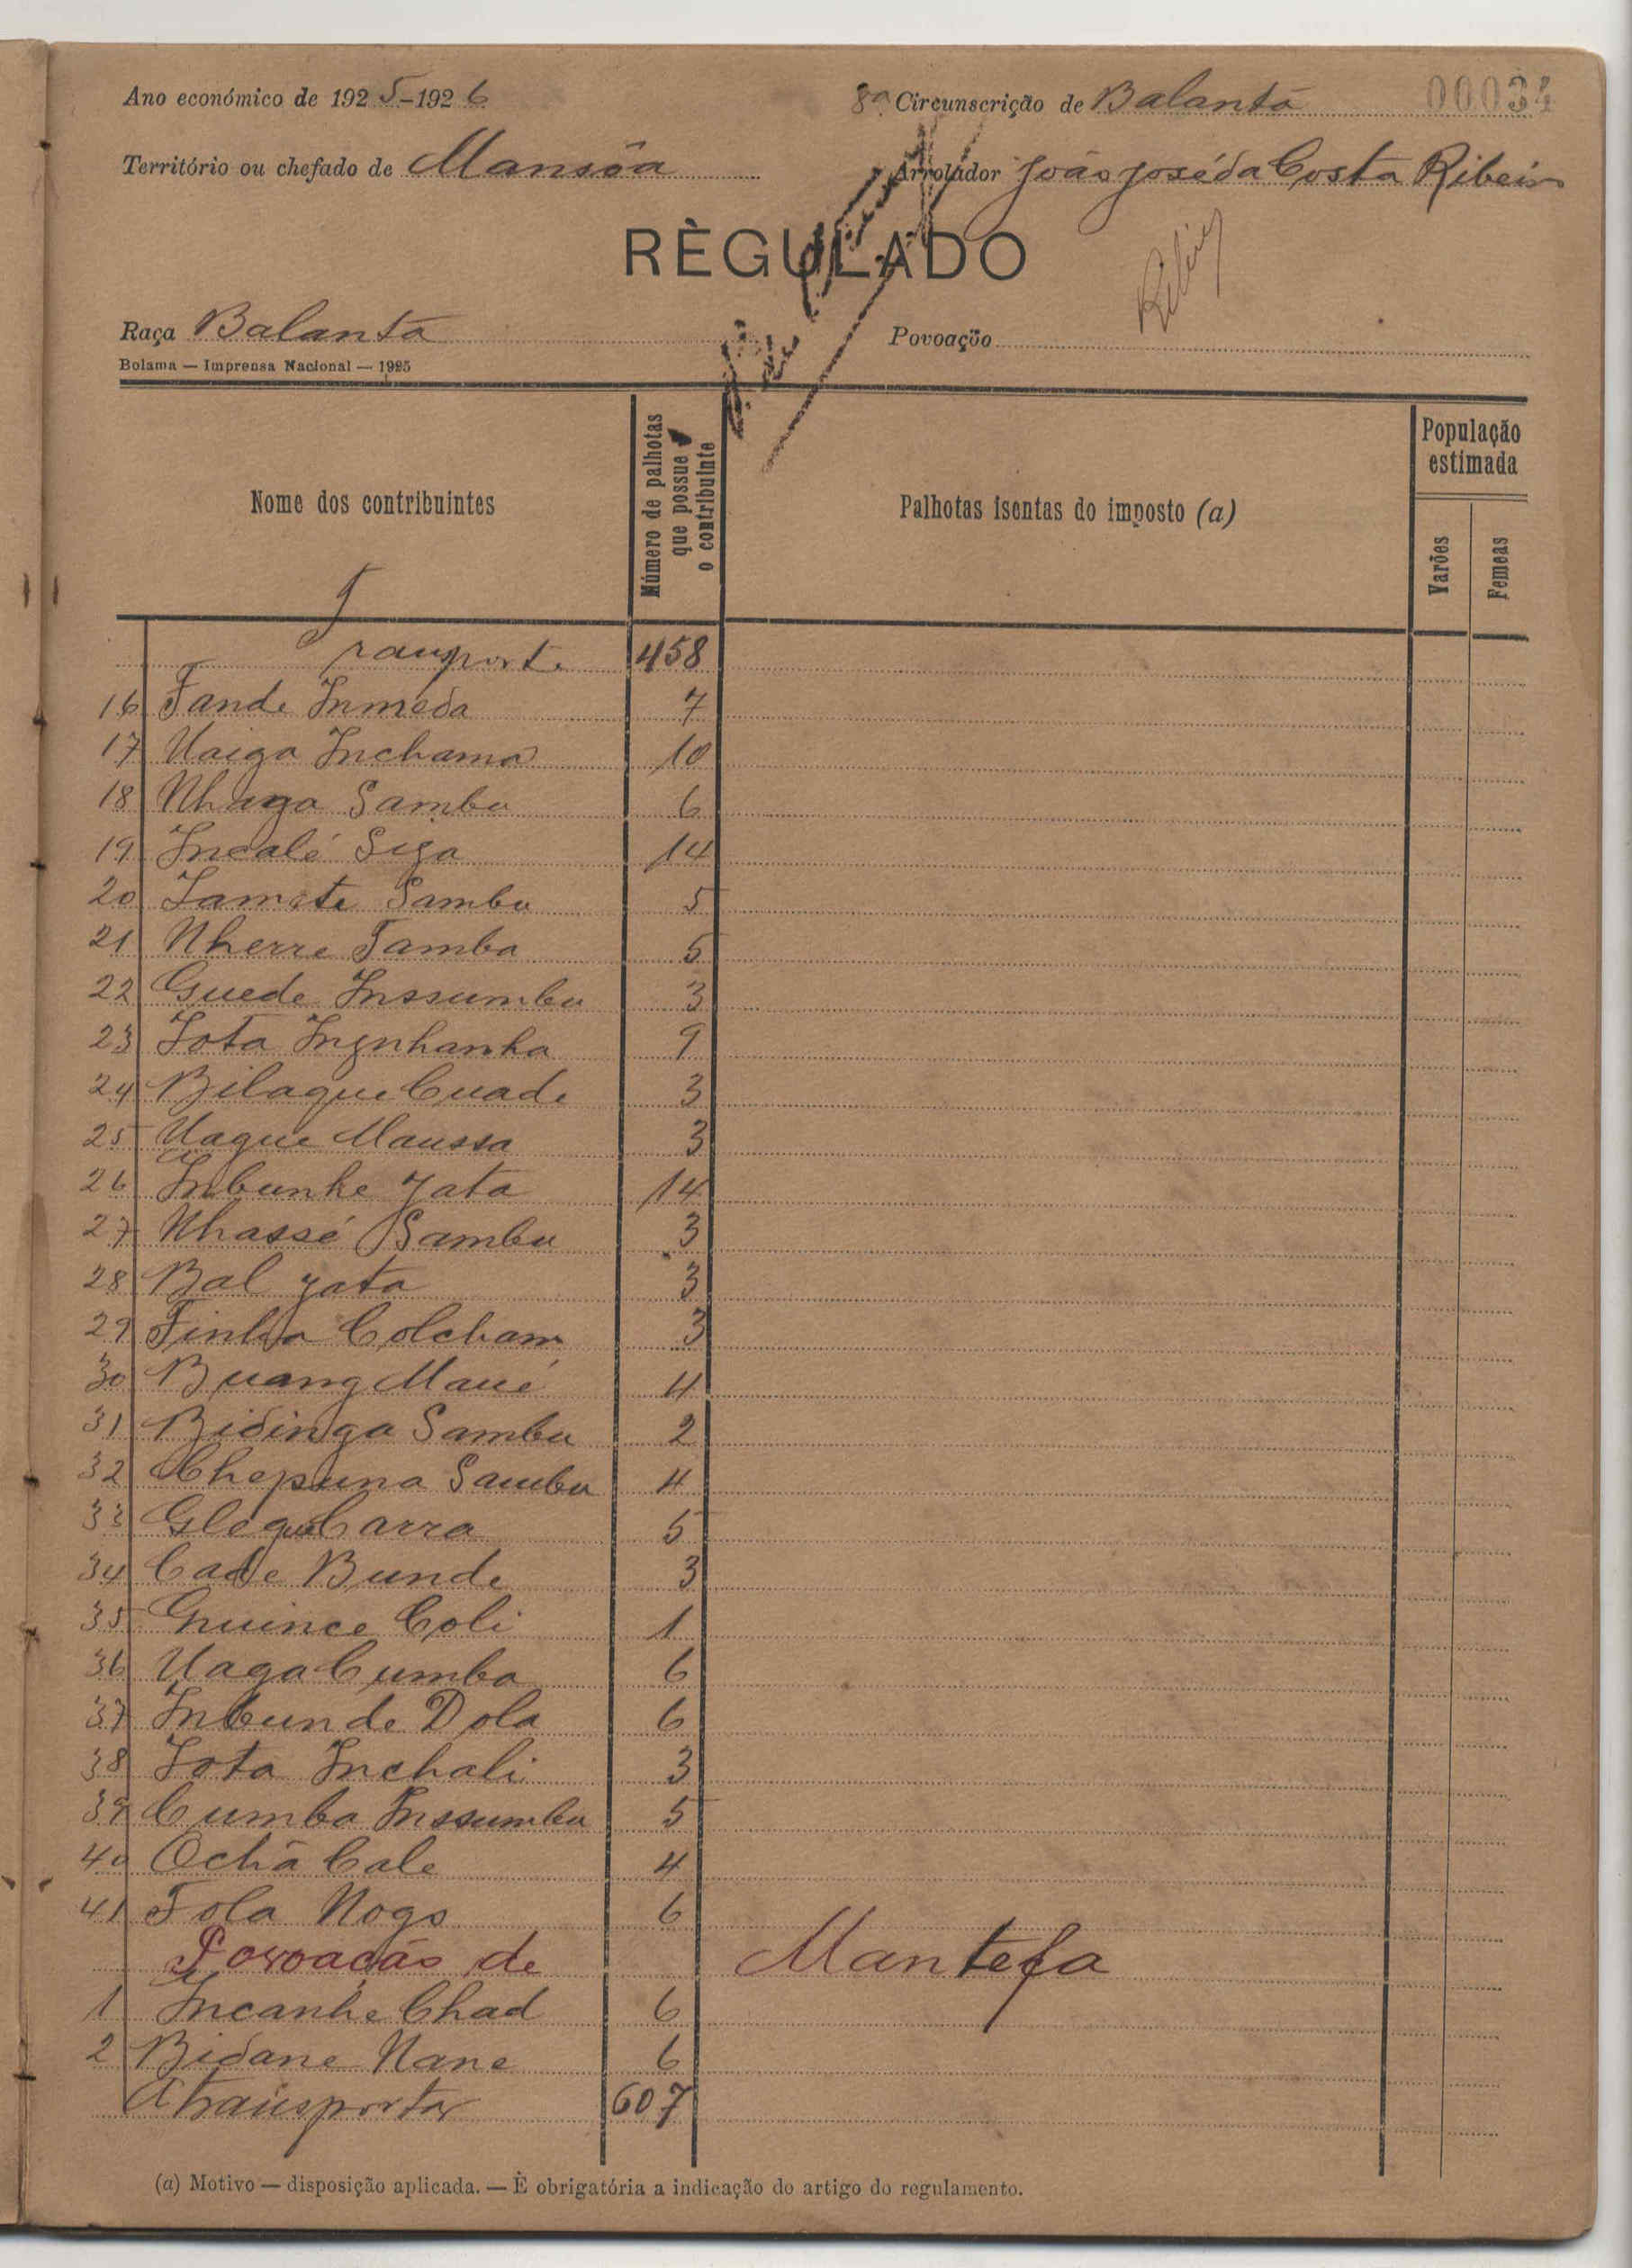 Ano económico de 1925-1926
8ª Circunscrição de Balanta
00034
Território ou chefado de Mansôa
Arrolador João José da Costa Ribeiro
RÈGULADO
Raça Balanta
Povoação
Bolama — Imprensa Nacional — 1925
Nome dos contribuintes
Número de palhotas que possue o contribuinte
Palhotas isentas do imposto (a)
População estimada
Varões
Femeas
Transporte 458
16 Fande Inmeda 7
17 Uaiga Inchama 10
18 Nhaga Sambu 6
19 Incalé Siga 14
20 Tamate Sambu 5
21 Nherre Tamba 5
22 Guede Inssumbu 3
23 Tota Ingnhanha 9
24 Bilaque Cuade 3
25 Uaque Maussa 3
26 Inbunhe Yata 14
27 Nhassé Sambu 3
28 Bal Yata 3
29 Finha Colcham 3
30 Buang Maué 4
31 Bidinga Sambu 2
32 Chepuna Sambu 4
33 Glegue Carra 5
34 Cade Bunde 3
35 Guince Coli 1
36 Uaga Cumba 6
37 Inbunde Dola 6
38 Tota Inchali 3
39 Cumba Inssumbu 5
40 Ochã Cale 4
41 Fola Nogo 6
Povoação de Mantefa
1 Incanhe Chad 6
2 Bidane Nane 6
A transportar 607
(a) Motivo — disposição aplicada. — È obrigatória a indicação do artigo do regulamento.